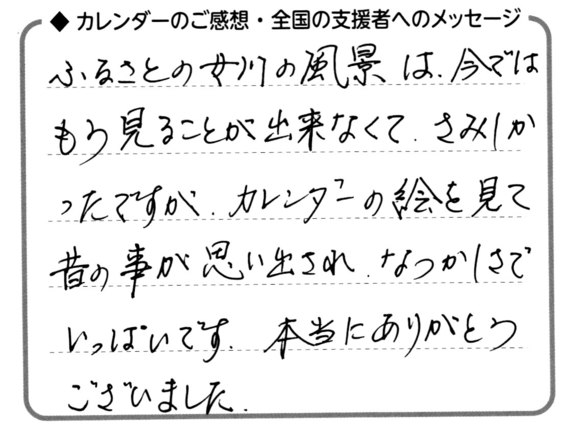 ◆ カレンダーのご感想・全国の支援者へのメッセージ
ふるさとの女川の風景は、今では
もう見ることが出来なくて、さみしか
ったですが、カレンダーの絵を見て
昔の事が思い出され、なつかしさで
いっぱいです。本当にありがとう
ございました。